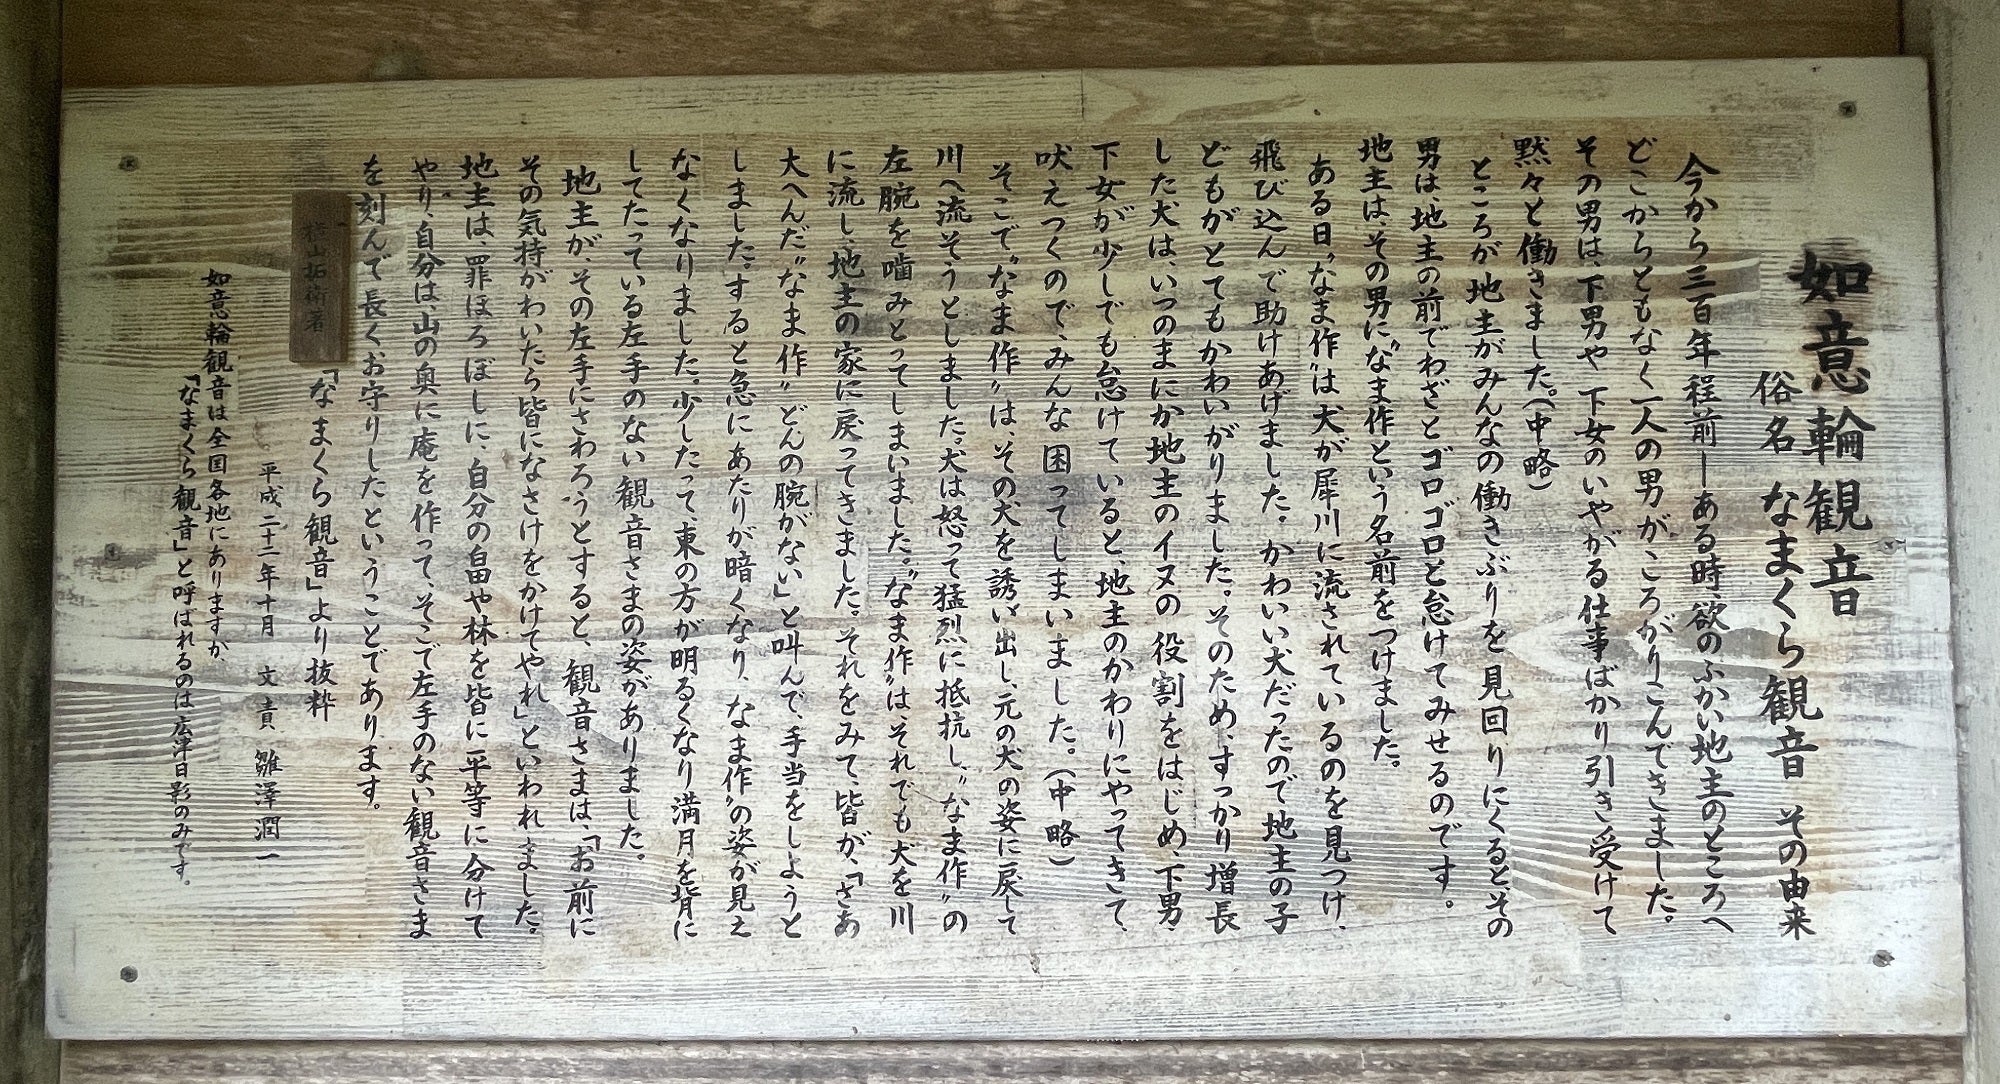 如意輪観音
俗名 なまくら観音 その由来
今から三百年程前―ある時欲のふかい地主のところへ
どこからともなく一人の男がころがりこんできました。
その男は、下男や下女のいやがる仕事ばかり引き受けて
黙々と働きました。(中略)
ところが地主がみんなの働きぶりを見回りにくるとその
男は、地主の前でわざとゴロゴロと怠けてみせるのです。
地主は、その男に〝なま作という名前をつけました。
ある日〝なま作〟は犬が犀川に流されているのを見つけ、
飛び込んで助けあげました。かわいい犬だったので地主の子
どもがとてもかわいがりました。そのため、すっかり増長
した犬は、いつのまにか地主のイヌの役割をはじめ、下男・
下女が少しでも怠けていると、地主のかわりにやってきて、
吠えつくので、みんな困ってしまいました。(中略)
そこで〝なま作〟は、その犬を誘い出し、元の犬の姿に戻して
川へ流そうとしました。犬は怒って猛烈に抵抗し、〝なま作〟の
左腕を噛みとってしまいました。〝なま作〟は、それでも犬を川
に流し、地主の家に戻ってきました。それをみて、皆が、「さあ
大へんだ〝なま作〟どんの腕がない」と叫んで、手当をしようと
しました。すると急にあたりが暗くなり、なま作〟の姿が見え
なくなりました。少したって東の方が明るくなり満月を背に
してたっている左手のない観音さまの姿がありました。
地主が、その左手にさわろうとすると、観音さまは、「お前に
その気持がわいたら皆になさけをかけてやれ」といわれました。
地主は、罪ほろぼしに、自分の畠や林を皆に平等に分けて
やり、自分は、山の奥に庵を作って、そこで左手のない観音さま
を刻んで長くお守りしたということであります。
横山拓衛著 「なまくら観音」より抜粋
平成二十二年十月 文責 雛澤潤一
如意輪観音は全国各地にありますが、
「なまくら観音」と呼ばれるのは広津日影のみです。